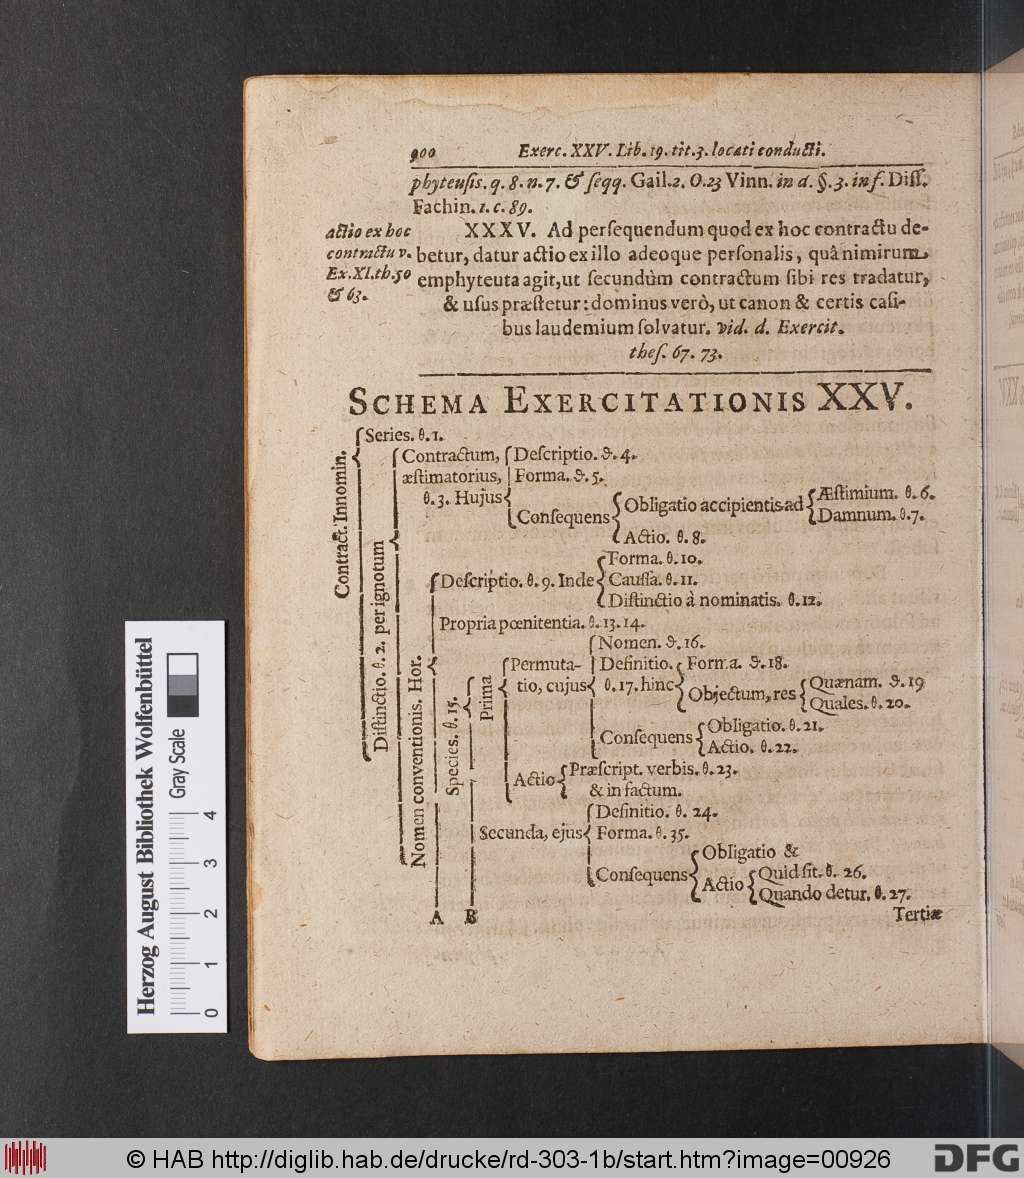 900 Exerc. XXV. Lib. 19. tit. 3. locati conducti.
phyteusis. q. 8. n. 7. & seqq. Gail. 2. O. 23 Vinn. in d. §. 3. inf. Diss.
Fachin. 1. c. 89.
actio ex hoc
contractu v.
Ex. XI. th. 50
& 63.
XXXV. Ad persequendum quod ex hoc contractu de-
betur, datur actio ex illo adeoque personalis, quâ nimirum
emphyteuta agit, ut secundùm contractum sibi res tradatur,
& usus præstetur: dominus verò, ut canon & certis casi-
bus laudemium solvatur. vid. d. Exercit.
thes. 67. 73.
SCHEMA EXERCITATIONIS XXV.
Contract. Innomin.
Series. θ. 1.
Distinctio. θ. 2. per ignotum
Contractum,
æstimatorius,
θ. 3. Hujus
Descriptio. ϑ. 4.
Forma. ϑ. 5.
Consequens
Obligatio accipientis ad
Æstimium. θ. 6.
Damnum. θ. 7.
Actio. θ. 8.
Nomen conventionis. Hor.
Descriptio. θ. 9. Inde
Forma. θ. 10.
Caussa. θ. 11.
Distinctio à nominatis. θ. 12.
Propria pœnitentia. θ. 13. 14.
Species. θ. 15.
Prima
Permuta-
tio, cujus
Nomen. ϑ. 16.
Definitio.
θ. 17. hinc
Forma. ϑ. 18.
Objectum, res
Quænam. ϑ. 19
Quales. θ. 20.
Consequens
Obligatio. θ. 21.
Actio. θ. 22.
Actio
Præscript. verbis. θ. 23.
& in factum.
Secunda, ejus
Definitio. θ. 24.
Forma. θ. 35.
Consequens
Obligatio &
Actio
Quid sit. θ. 26.
Quando detur. θ. 27.
A B
Tertiæ
Herzog August Bibliothek Wolfenbüttel
Gray Scale
0 1 2 3 4
© HAB http://diglib.hab.de/drucke/rd-303-1b/start.htm?image=00926
DFG